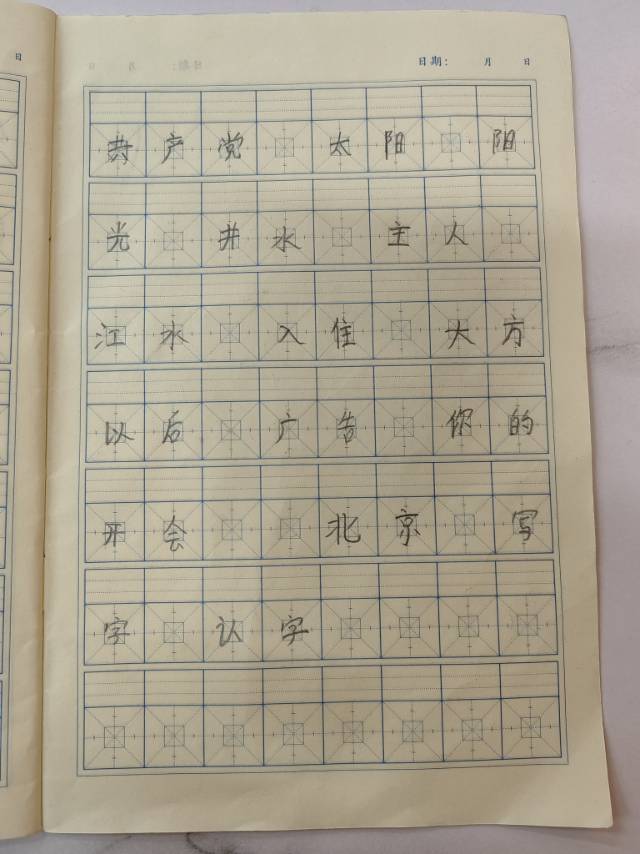 日
日期: 月 日
共产党 太阳 阳
光 井水 主人
江水 入住 大方
以后 广告 你的
开会 北京 写
字 认字